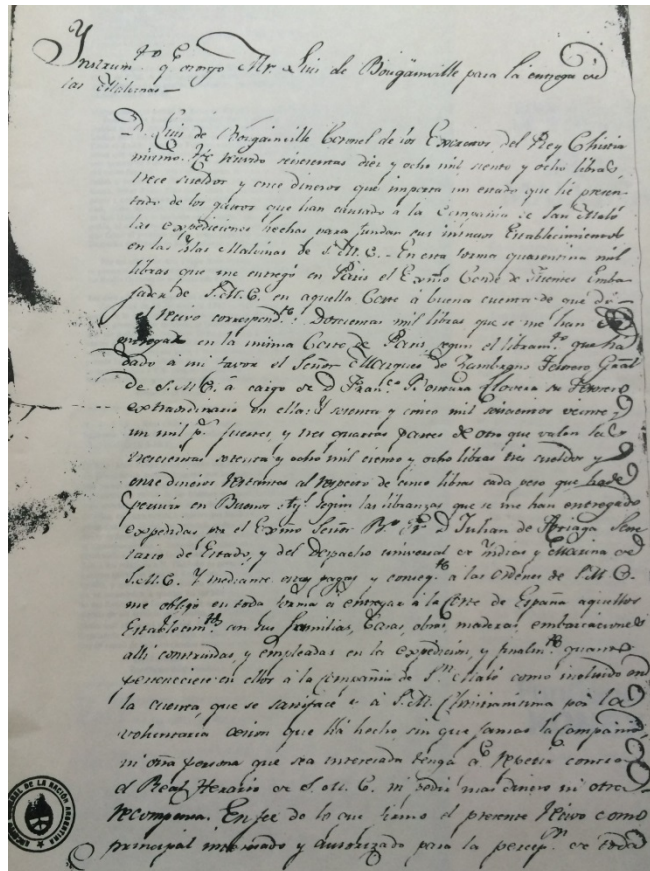 Instrum.to q.e otorgo Mr. Luis de Bougainville para la entrega de
las Malvinas —
D. Luis de Bougainville Coronel de los Exercitos del Rey Christia
nisimo. He recivido seiscientas diez y ocho mil ciento y ocho libras,
trece sueldos y once dineros que importa un estado que hé presen-
tado de los gastos que han causado a la Compania de San Maló
las expediciones hechas para fundar sus intrusos Establecimientos
en las Yslas Malvinas de S.M.C. - En esta forma quarenta mil
libras que me entregó en Paris el Exmo Conde de Fuentes Emba
jador de S.M.C. en aquella Corte à buena cuenta de que dì
el recivo correspond.te: Doscientas mil libras que se me han de
entregar en la misma Corte de Paris, segun el libram.to que ha
dado à mi favor el Señor Marques de Zambrano Tesorero Gñal
de S.M.C. à cargo de D. Fran.co Ventura Llovera su Tesorero
extraordinario en ella: Y setenta y cinco mil seiscientos veinte y
un mil p.s fuertes, y tres quartas partes de otro que valen las
trescientas setenta y ocho mil ciento y ocho libras tres sueldos y
once dineros restantes al respecto de cinco libras cada peso que hé de
percivir en Buenos Ay.s segun las libranzas que se me han entregado
expedidas por el Exmo Señor D. Julian de Arriaga Secre
tario de Estado, y del Despacho universal de Yndias y Marina de
S.M.C. Y mediante estos pagos y conseq.te à las ordenes de S.M.C.
me obligo en toda forma à entregar à la Corte de España aquellos
Establecim.tos con sus familias, Casas, obras, maderas, embarcaciones
alli construidas, y empleadas en la expedicion, y finalm.te quanto
perteneciere en ellos à la compañia de S.n Maló como incluido en
la cuenta, que se satisface y à S.M. Christianisima por la
voluntaria cesion que há hecho sin que jamas la Compañia,
ni otra persona que sea interesada tenga q.e repetir contra
el Real Herario de S.M.C. ni pedir mas dinero ni otra
recompensa. En fee de lo que firmo el presente recivo como
principal interesado y autorizado para la percep.on de toda
ARCHIVO GENERAL DE LA NACION ARGENTINA